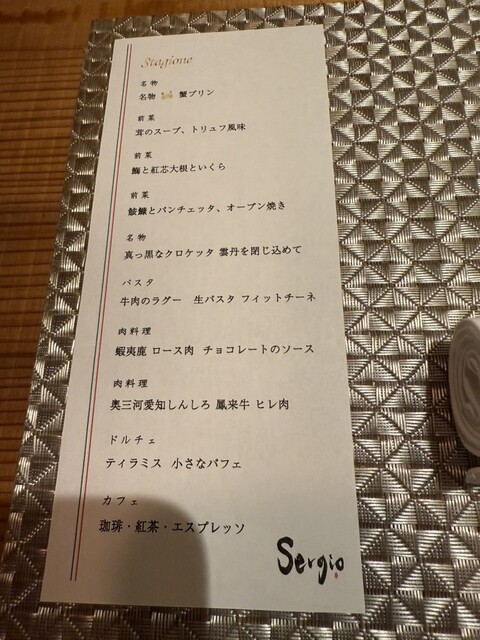 Stagione
名物
名物 蟹プリン
前菜
茸のスープ、トリュフ風味
前菜
鰤と紅芯大根といくら
前菜
鮟鱇とパンチェッタ、オーブン焼き
名物
真っ黒なクロケッタ 雲丹を閉じ込めて
パスタ
牛肉のラグー 生パスタ フィットチーネ
肉料理
蝦夷鹿 ロース肉 チョコレートのソース
肉料理
奥三河愛知しんしろ 鳳来牛 ヒレ肉
ドルチェ
ティラミス 小さなパフェ
カフェ
珈琲・紅茶・エスプレッソ
Sergio